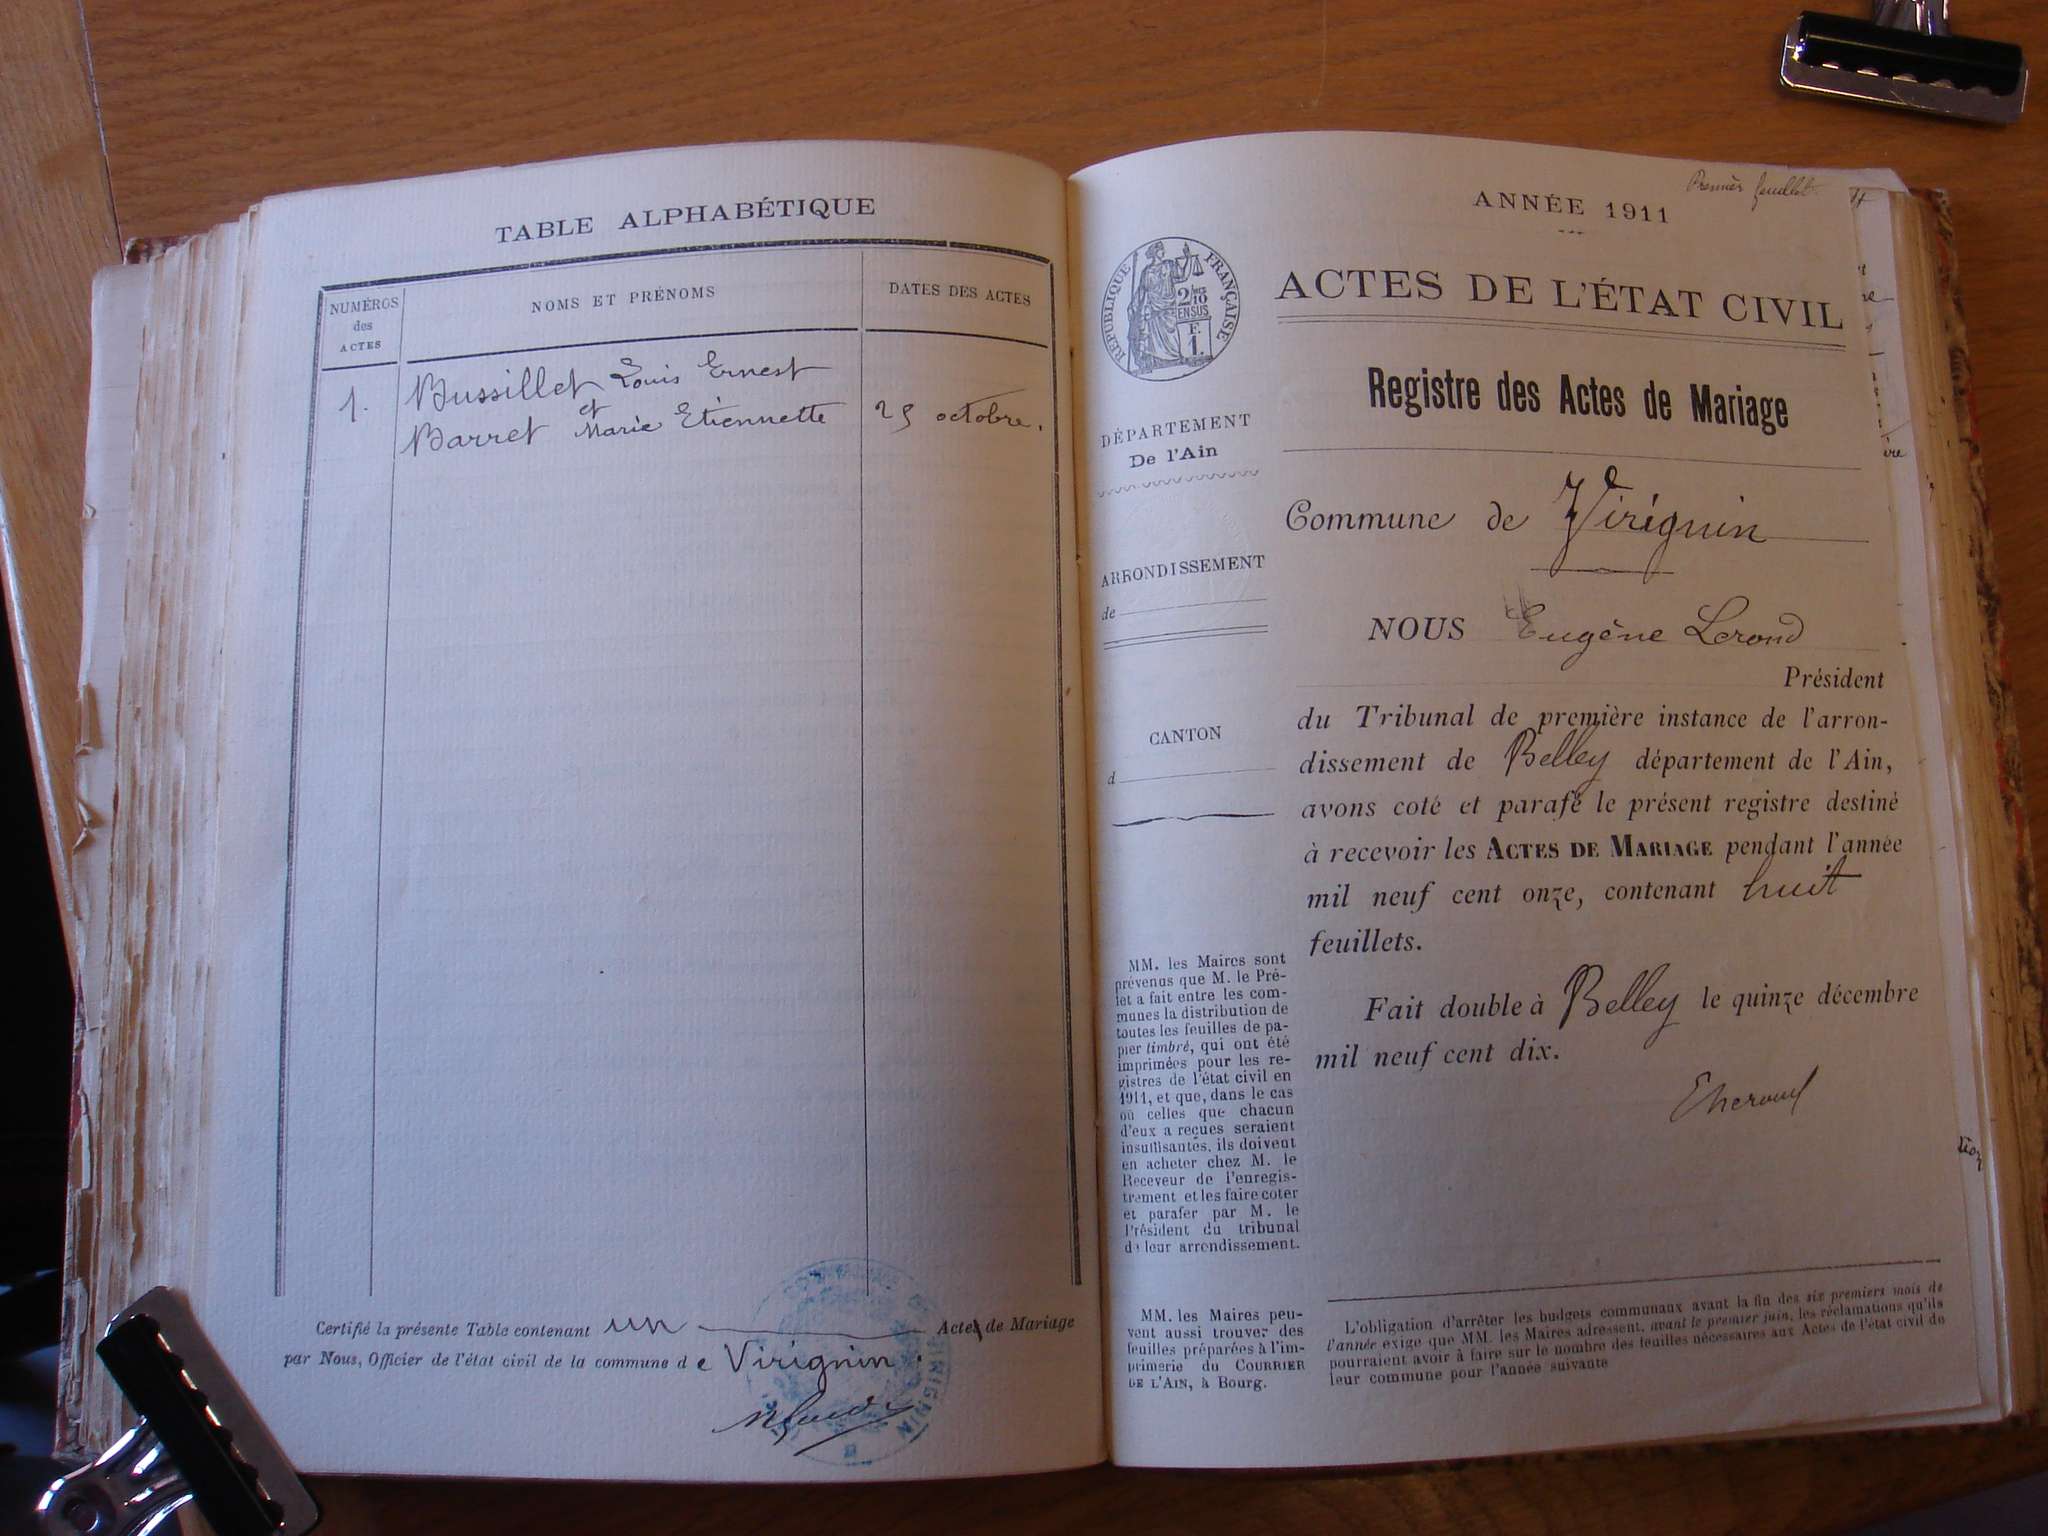 TABLE ALPHABÉTIQUE
NUMÉROS
des
ACTES
NOMS ET PRÉNOMS
DATES DES ACTES
1.
Bussillet Louis Ernest
et
Barret Marie Etiennette
25 octobre.
Certifié la présente Table contenant un Actes de Mariage
par Nous, Officier de l'état civil de la commune de Virignin.
Premier feuillet
ANNÉE 1911
RÉPUBLIQUE FRANÇAISE
2/10
EN SUS
F.
1.
ACTES DE L'ÉTAT CIVIL
Registre des Actes de Mariage
DÉPARTEMENT
De l'Ain
Commune de Virignin
ARRONDISSEMENT
de
NOUS Eugène
Président
du Tribunal de première instance de l'arron-
dissement de Belley département de l'Ain,
avons coté et parafé le présent registre destiné
à recevoir les ACTES DE MARIAGE pendant l'année
mil neuf cent onze, contenant huit
feuillets.
CANTON
d
Fait double à Belley le quinze décembre
mil neuf cent dix.
MM. les Maires sont
prévenus que M. le Pré-
fet a fait entre les com-
munes la distribution de
toutes les feuilles de pa-
pier timbré, qui ont été
imprimées pour les re-
gistres de l'état civil en
1911, et que, dans le cas
où celles que chacun
d'eux a reçues seraient
insuffisantes, ils doivent
en acheter chez M. le
Receveur de l'enregis-
trement et les faire coter
et parafer par M. le
Président du tribunal
de leur arrondissement.
MM. les Maires peu-
vent aussi trouver des
feuilles préparées à l'im-
primerie du COURRIER
DE L'AIN, à Bourg.
L'obligation d'arrêter les budgets communaux avant la fin des six premiers mois de
l'année exige que MM. les Maires adressent, avant le premier juin, les réclamations qu'ils
pourraient avoir à faire sur le nombre des feuilles nécessaires aux Actes de l'état civil de
leur commune pour l'année suivante